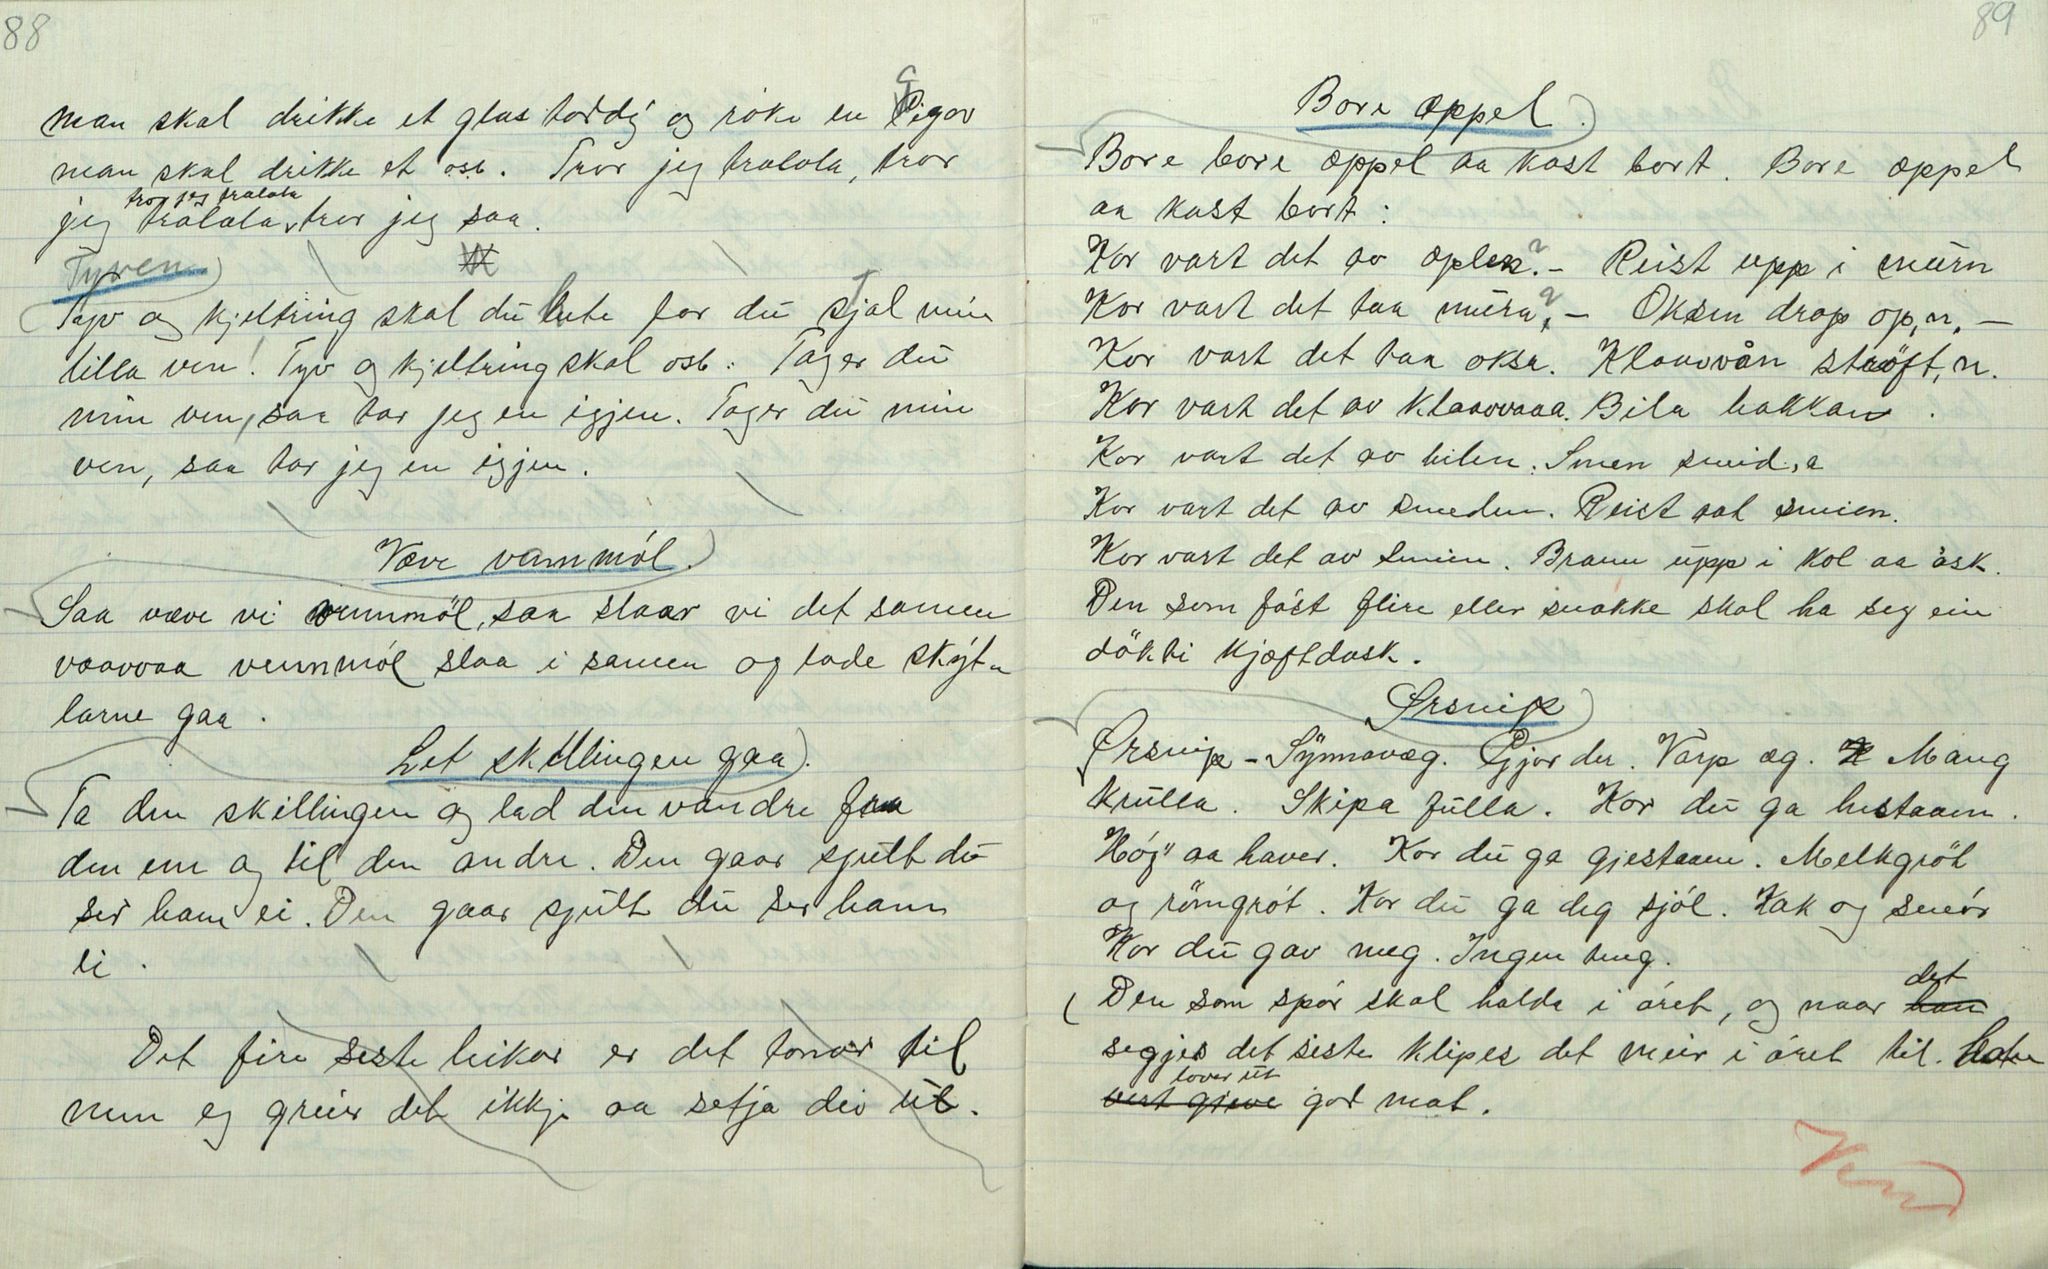 88
man skal drikke et glas toddy og röke en Cigar
man skal drikke et osb. Tror jeg tralala, tror
tror jeg tralala
jeg tralala, tror jeg saa.
Tyven
Tyv og kjeltring skal du hete for du stjal min
lilla ven! Tyv og kjeltring skal osb. Tager du
min ven, saa tar jeg en igjen. Tager du min
ven, saa tar jeg en igjen.
Væve vommöl.
Saa væve vi vommöl, saa slaar vi det samen
vaavaa vommöl slaa i samen og lade skyt-
larne gaa.
Let skillingen gaa.
Ta den skillingen og lad den vandre fraa
den ene og til den andre. Den gaar sjult du
ser ham ei. Den gaar sjult du ser ham
ei.
Det fire siste leikar er det tonar til
men eg greier det ikkje aa setja dei ut.
89
Bore æppel.
Bore bore æppel aa kast bort. Bore æppel
aa kast bort:
Kor vart det av æplen? – Reist upp i mürn
Kor vart det taa müra? – Oksen drap op,n. –
Kor vart det taa oksa. Klaavån ströft,n.
Kor vart det av Klaavaaa. Bila hakkan.
Kor vart det av bilen. Smen smid,a
Kor vart det av smeden. Reist aat smien.
Kor vart det av smien. Brann upp i kol aa åsk.
Den som föst flire eller snakke skal ha seg ein
dökti kjæftdask.
Ørsnip
Ørsnip – Synnavæg. Gjorder. Varp æg. Mang
krulla. Skipa fulla. Kor du ga hestaaen.
Höy aa haver. Kor du ga gjestaaen. Melkgröt
og römgröt. Kor du ga deg sjöl. Kak og smör
Kor du gav meg. Ingen ting.
det
Den som spör skal halda i öret, og naar han
segjes det siste klipes det meir i öret til.
lover ut
vert gjeve god mat.
Vend